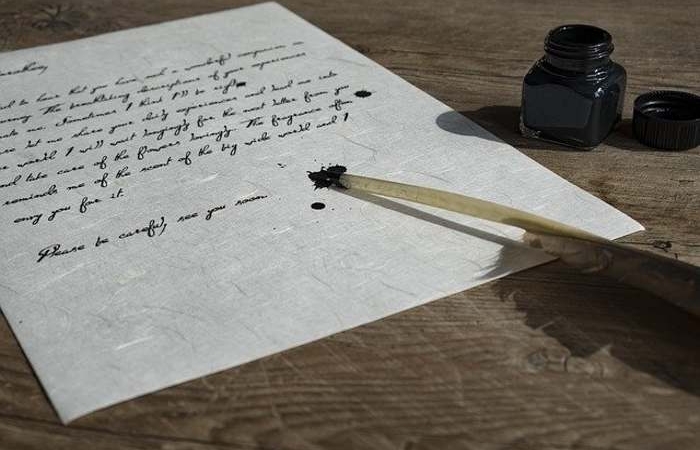 to hear that you have and a wonderful companion
The breathtaking descriptions of your experiences
me. Sometimes I think I'll be right
let me share your daily experiences and lead me into
world I will wait longingly for the next letter from you
and take care of the flowers lovingly. The fragrance often
reminds me of the scent of the big wide world and I
envy you for it.
Please be careful, see you soon.